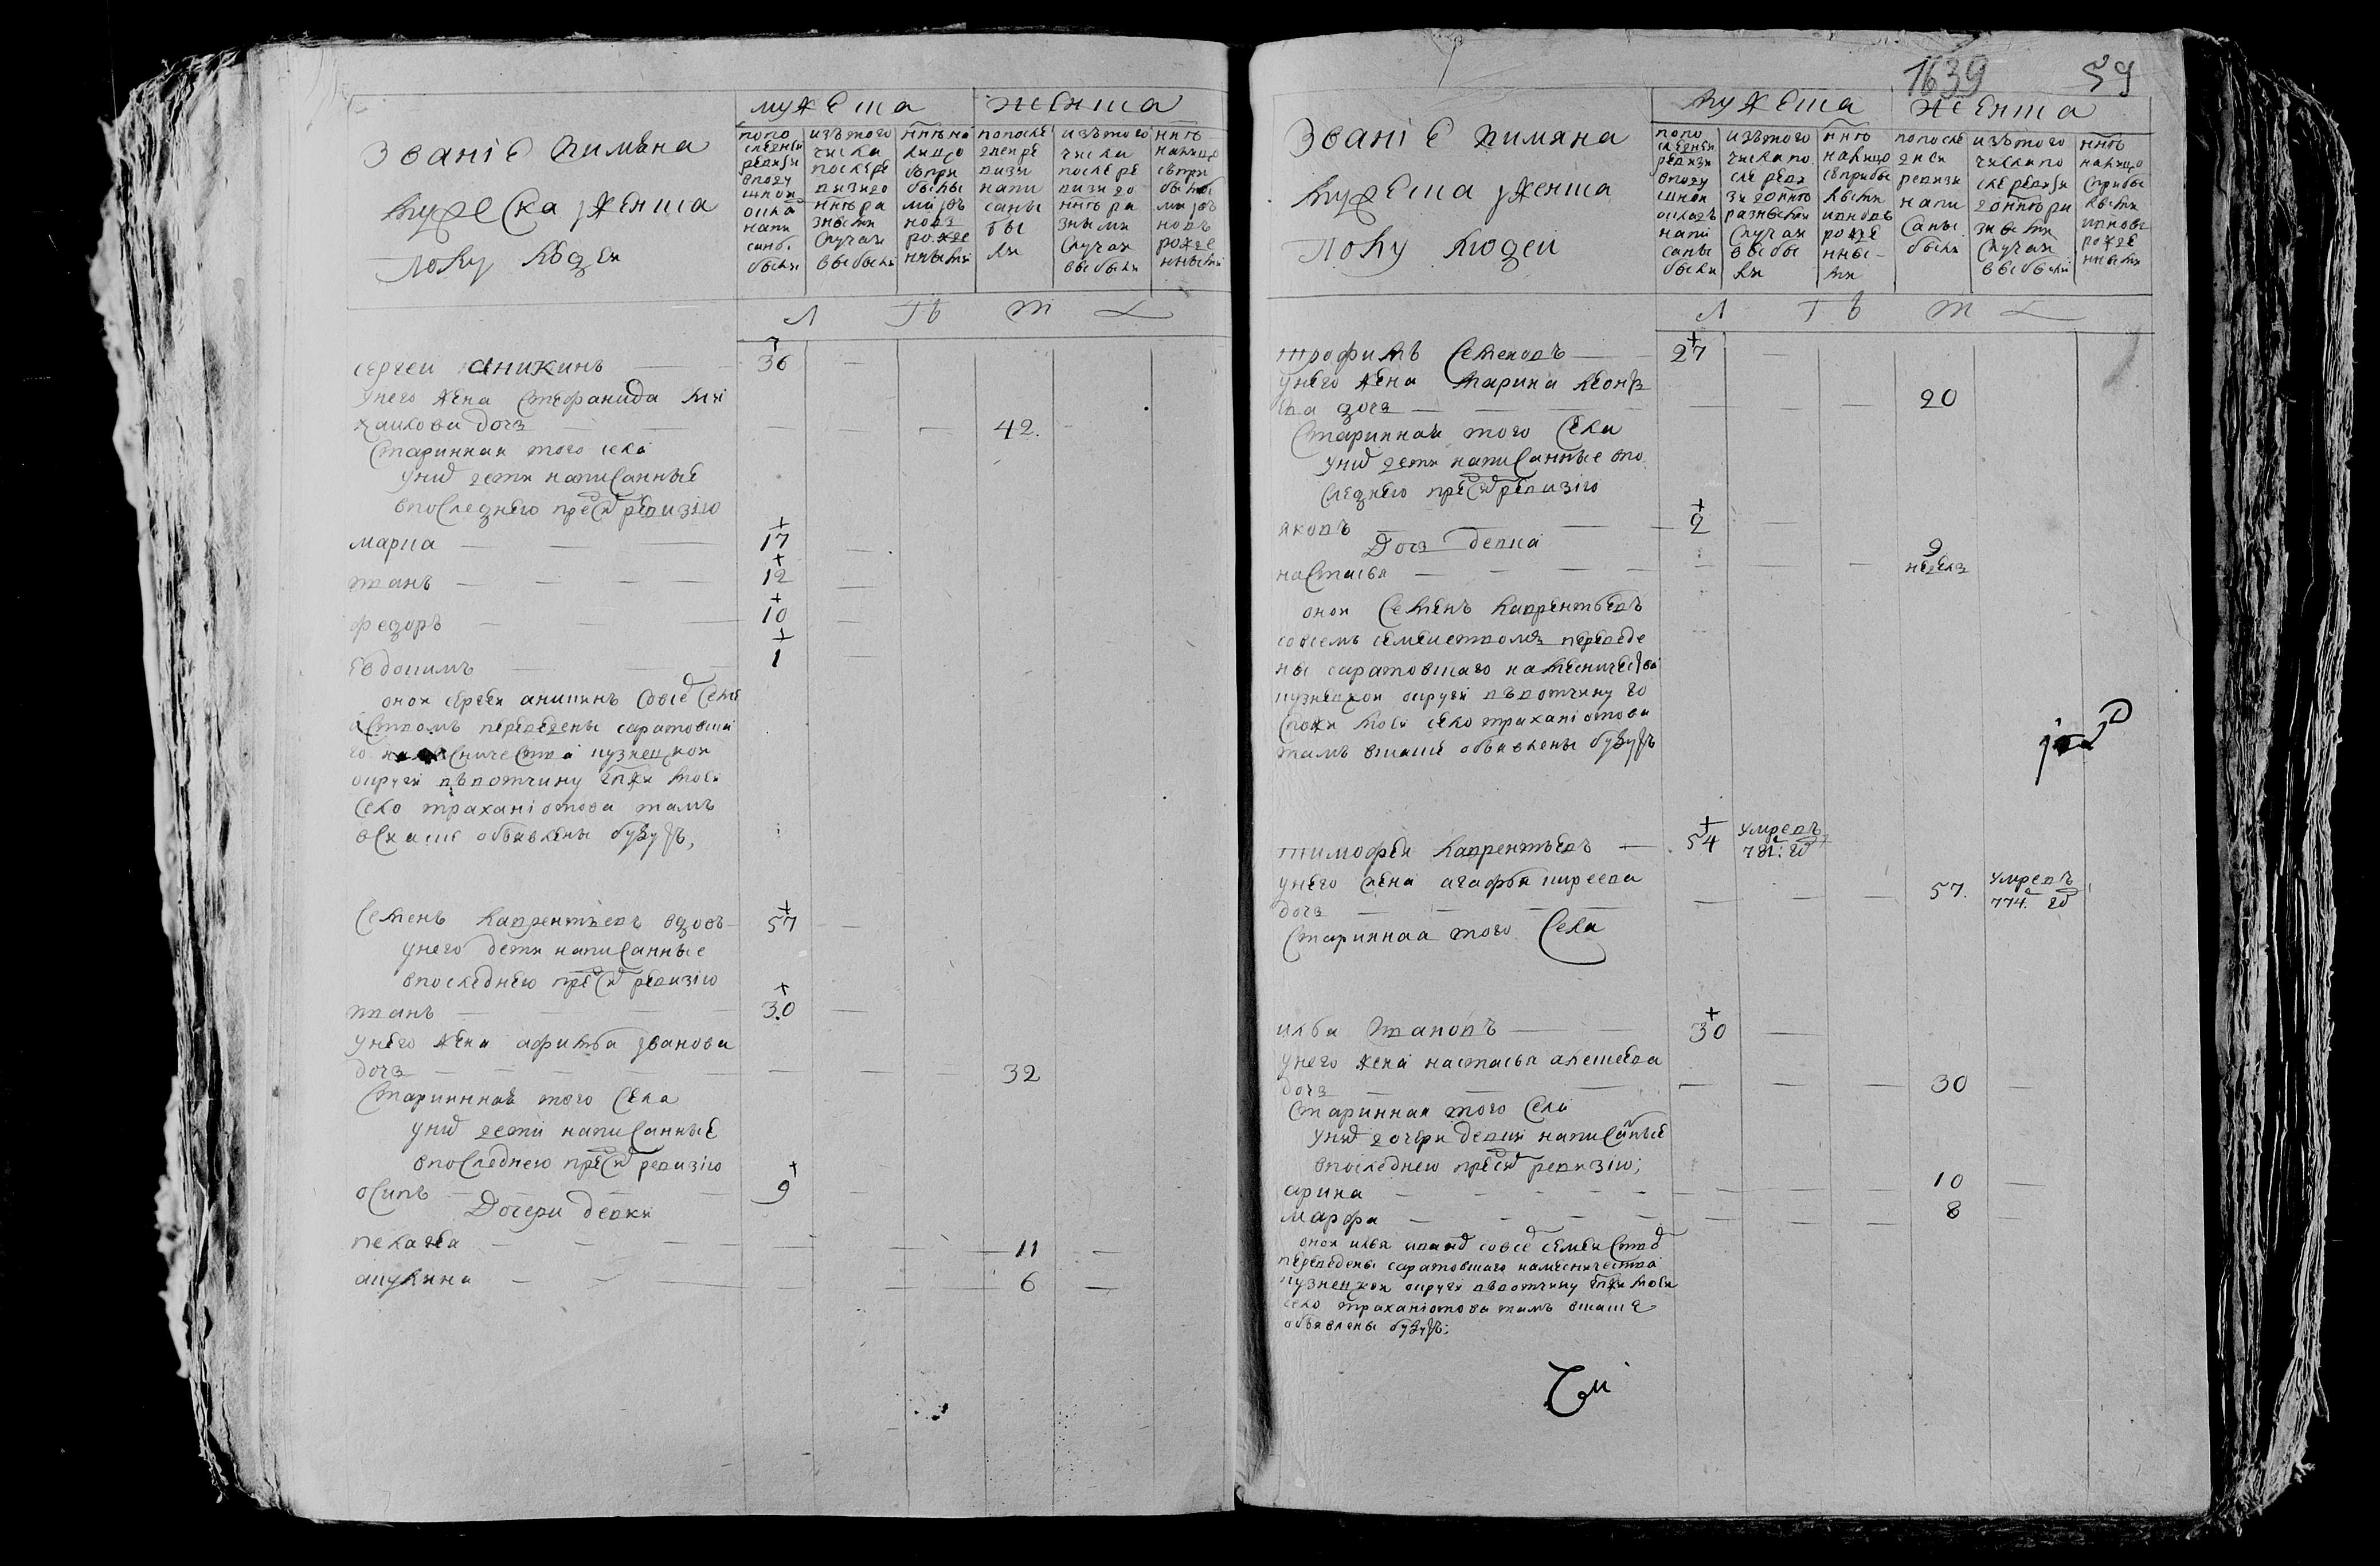 мужеска
женска
Званіе и имяна
мужеска и женска
полу людей
попо
следней
ревизи
вподу
шной
окла
напи
саны
были
изътого
числа
послере
визидо
ннеъра
зными
случаи
выбыли
ннеъна
лицо
съпри
былы
ми ивъ
новь
рожде
нными
попосле
днейре
визи
напи
саны
бы
ли
изътого
числа
послере
визи до
ннеъ ра
зными
случаи
выбыли
ннеъ
налицо
съпри
былы
ми ивъ
новъ
рожде
нными
Л Ѣ Т А
сергеи аникинъ 36
Унего жена Стефанида Ми
хаилова дочь 42
Старинная того села
унихъ дети написанные
впоследнею пред сим ревизию
марка 17
иванъ 12
федоръ 10
Евдокимъ 1
оной сергеи аникинъ совсем семе
йством переведены саратовска
го наместничества кузнецкой
округи въвотчину Гпжи моей
село траханіотова тамъ
вскаске объявлены будутъ,
Семенъ Лаврентьевъ вдовъ 57
унего дети написанные
впоследнею пред сим ревизию
иванъ 30
Унего жена афимья Иванова
дочь 32
Старинная того села
унихъ дети написанные
впоследнею пред сим ревизию
осипъ 9
Дочери девки
пелагея 11
акулина 6
1639 59
мужеска
женска
Званіе и имяна
мужеска и женска
полу людей
попо
следней
ревизи
вподу
шной
окладъ
напи
саны
были
изътого
числа по
сле реви
зи до ннеъ
разными
случаи
выбы
ли
ннеъ
налицо
съприбы
лыми
ивновъ
рожде
нны
ми
попосле
дней
ревизи
напи
саны
были
изътого
числа по
сле ревизи
до ннеъ ра
зными
случаи
выбыли
ннеъ
налицо
сприбы
лыми
ивновь
рожде
нными
Л Ѣ Т А
трофимъ Семеновъ 27
унего жена Марина Леонть
ва дочь 20
Старинная того села
унихъ дети написанные впо
следнею пред сим ревизию
яковъ 2
Дочь девка
настасья 9 недель
оной Семенъ Лаврентьевъ
совсемъ семеиствомъ переведе
ны саратовскаго наместничества
кузнецкой округи въвотчину го
спожи моей село траханіотова
тамъ вскаске объявлены будутъ
тимофеи Лаврентьевъ 54 умревъ 781: год
унего жена агафья киреева
дочь 57. умревъ 774. год
Старинная того Села
илья Ивановъ 30
унего жена настасья алексеева
дочь 30
Старинная того села
унихъ дочери девки написаные
впоследнею пред сим ревизию;
арина 10
марфа 8
оной илья иванов совсем семеиством
переведены саратовскаго наместничества
кузнецкой округи въвотчину Гпжи моей
село траханіотова тамъ вскаске
объявлены будутъ;